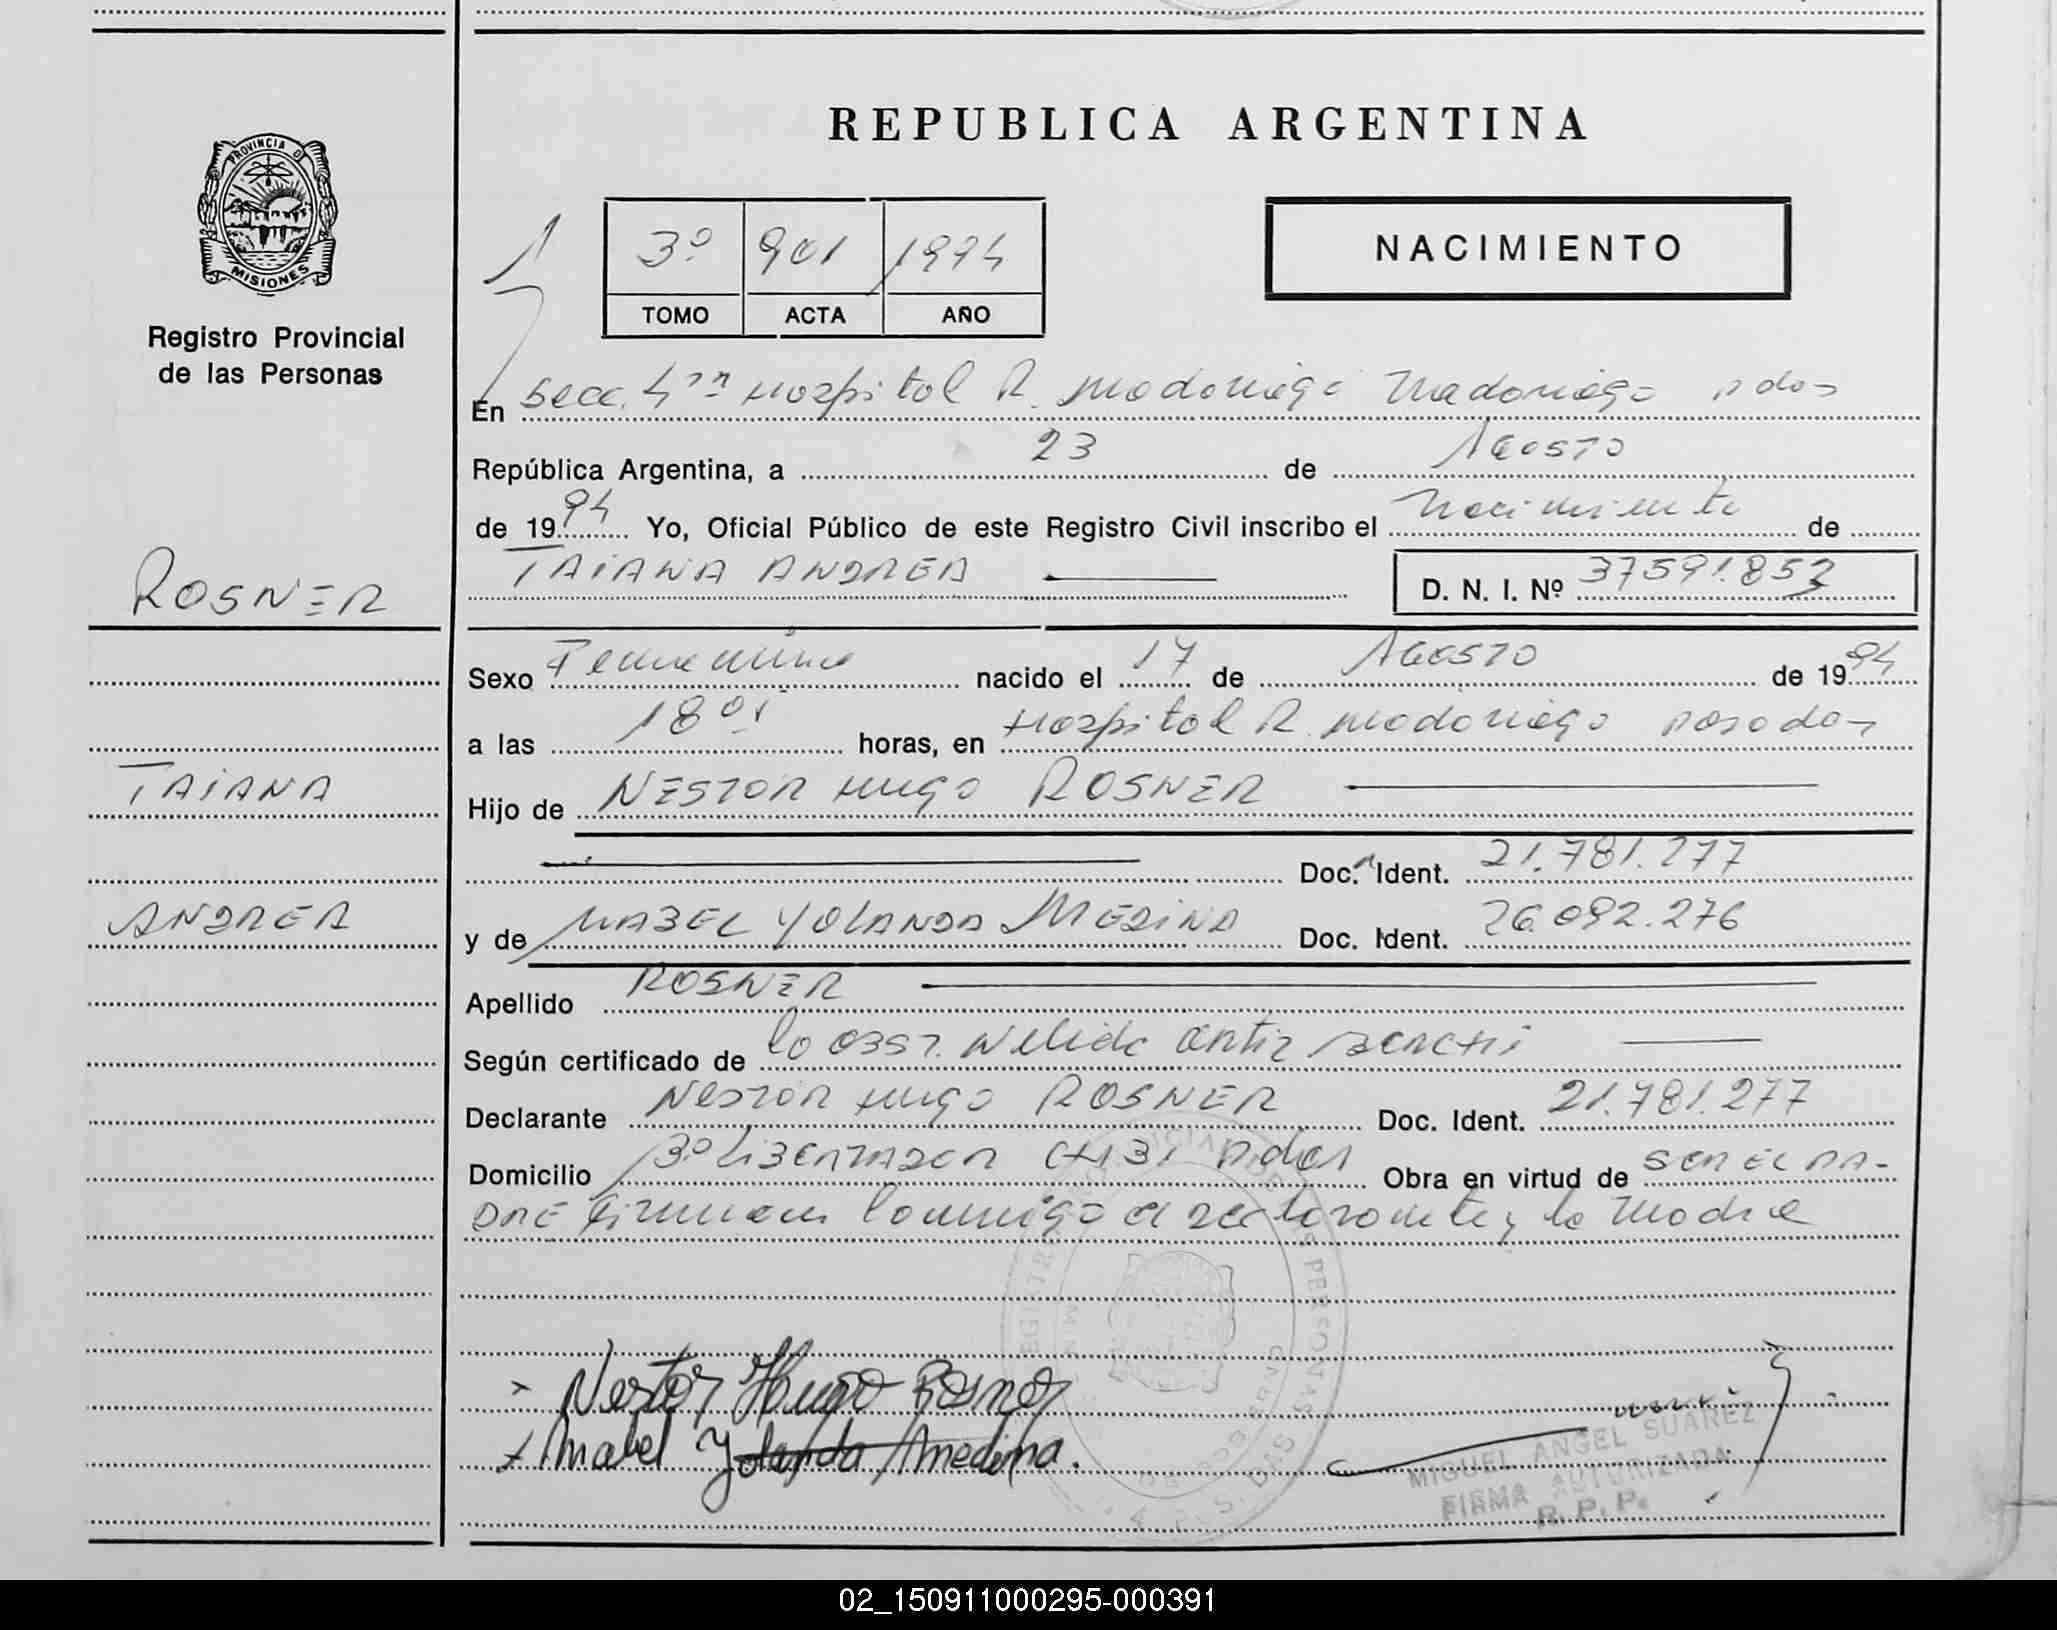 REPUBLICA ARGENTINA
PROVINCIA DE
MISIONES
Registro Provincial
de las Personas
3º 901 1994
TOMO ACTA AÑO
NACIMIENTO
En Secc. 4ta Hospital R. Madariaga Madariaga Pdas
República Argentina, a 23 de Agosto
de 1994 Yo, Oficial Público de este Registro Civil inscribo el Nacimiento de
TAIANA ANDREA D. N. I. Nº 37591.853
ROSNER
Sexo Femenino nacido el 17 de AGOSTO de 1994
a las 18 horas, en Hospital R. Madariaga Posadas
TAIANA
Hijo de NESTOR HUGO ROSNER
Doc. Ident. 21.781.277
ANDREA
y de MABEL YOLANDA MEDINA Doc. Ident. 26.092.276
Apellido ROSNER
Según certificado de la OBST. Nelida Ortiz
Declarante NESTOR HUGO ROSNER Doc. Ident. 21.781.277
Domicilio Bº LIBERTADOR CH 31 Pdas Obra en virtud de SER EL PA-
DRE Firman conmigo el declarante y la Madre
Nestor Hugo Rosner
Mabel Yolanda Medina.
MIGUEL ANGEL SUAREZ
FIRMA AUTORIZADA
R. P. P.
02_150911000295-000391